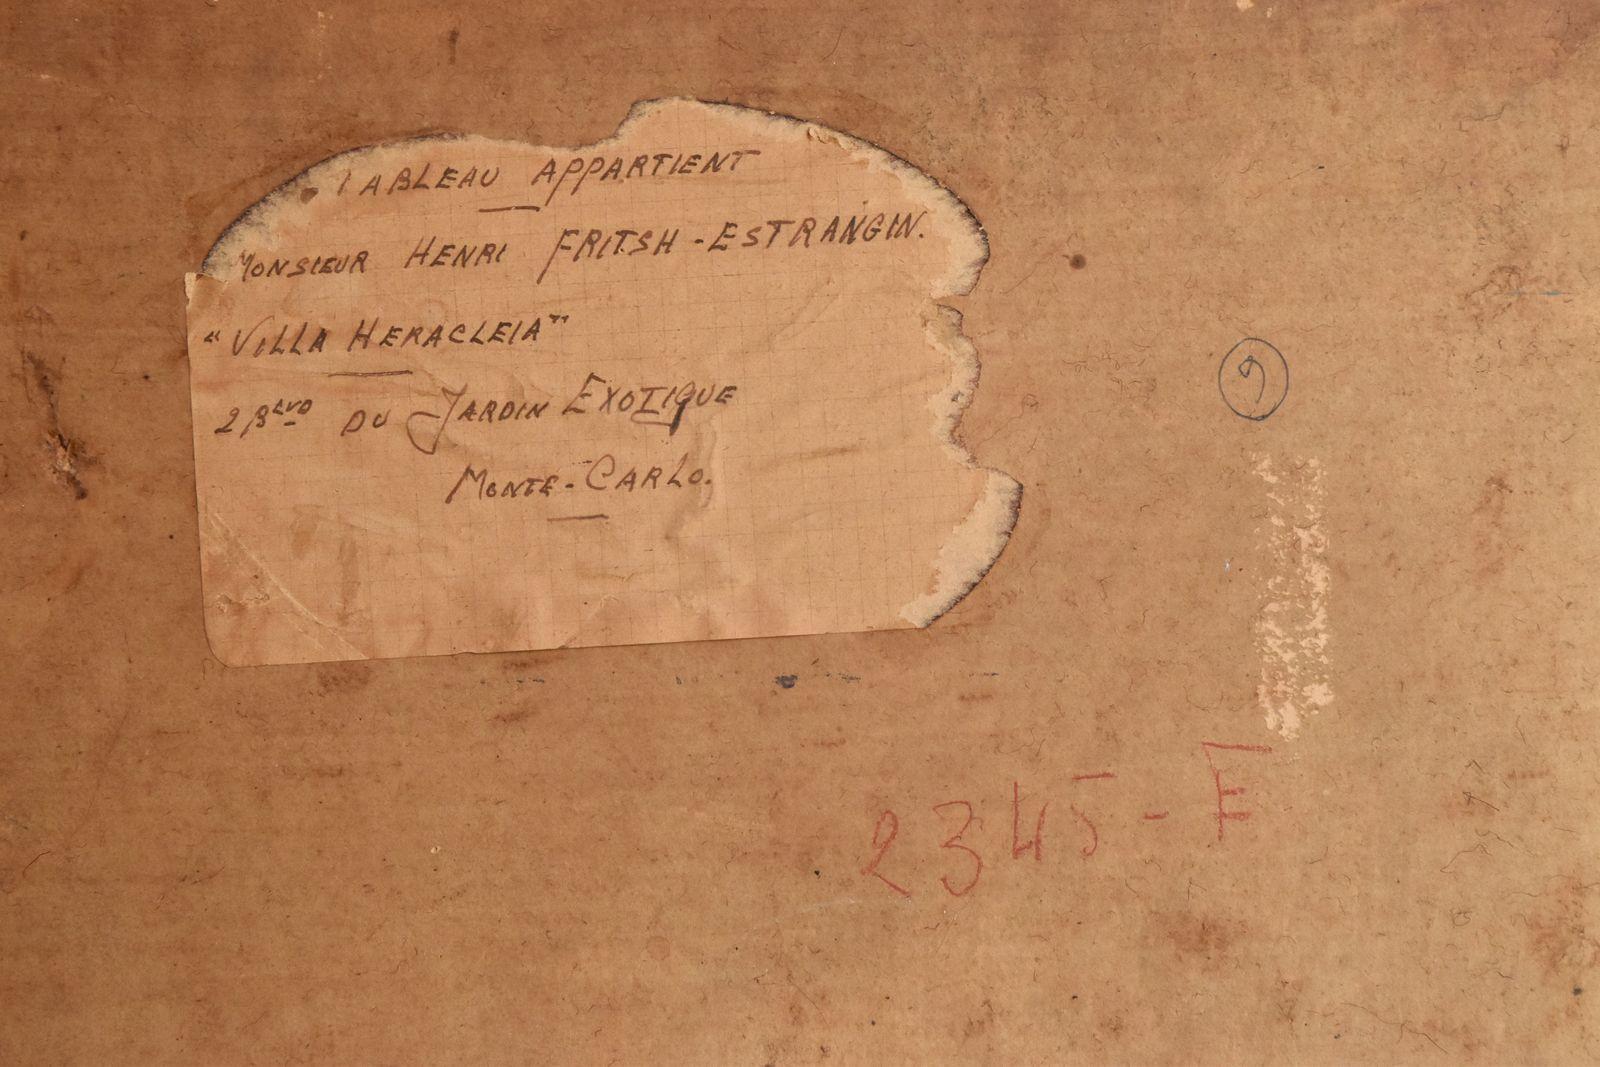 TABLEAU APPARTIENT
MONSIEUR HENRI FRITSH-ESTRANGIN.
"VILLA HERACLEIA"
2 BLVD DU JARDIN EXOTIQUE
MONTE-CARLO.
9
2345-F